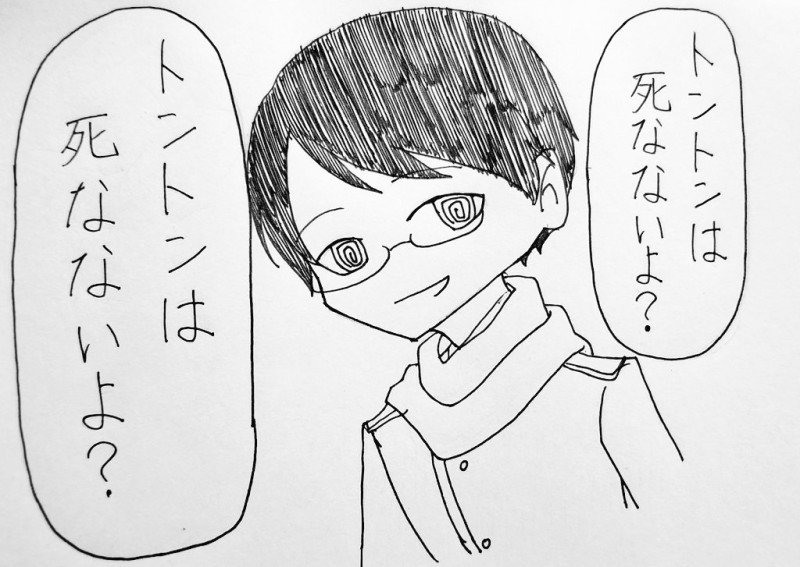 トントンは
死なないよ?
トントンは
死なないよ?